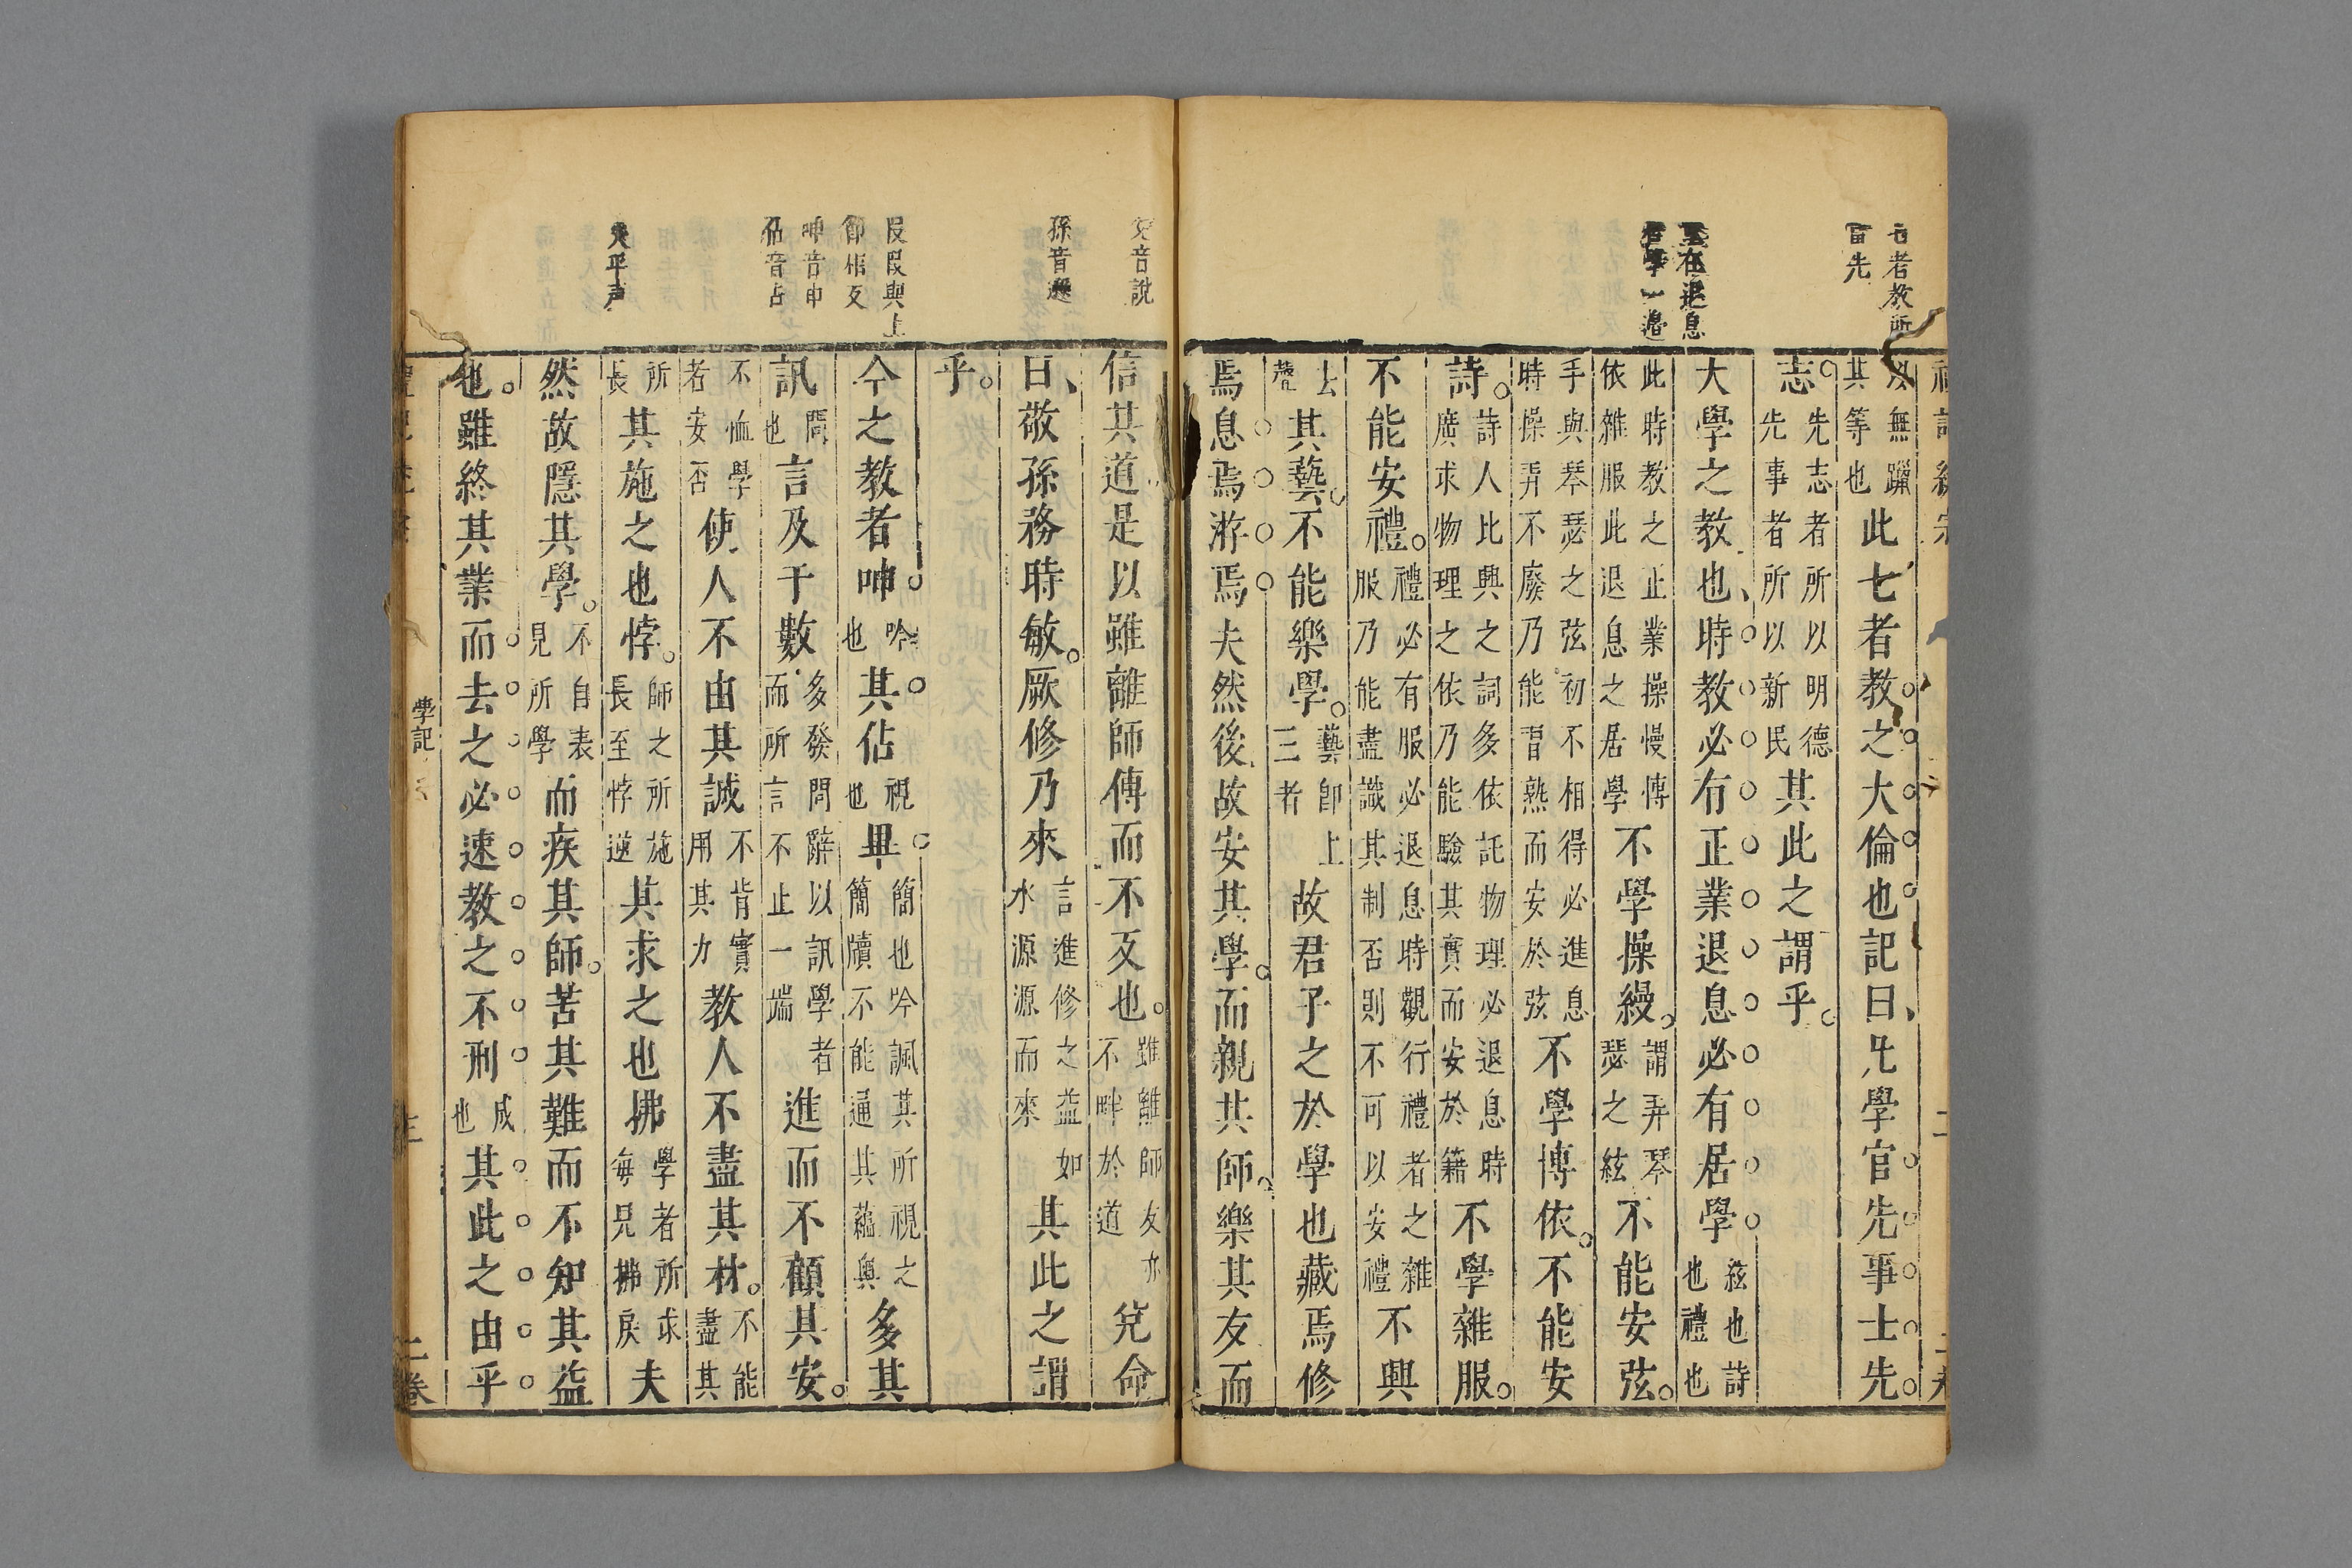 古者教所
首先
無躐
其等也此七者教之大倫也記曰凡學官先事士先
志先志者所以明德先事者所以新民其此之謂乎
大學之教也時教必有正業退息必有居學絃也詩也禮也
此時教之正業操慢愽依雜服此退息之居學不學操縵謂弄琴瑟之絃不能安弦
手與琴瑟之弦初不相得必進息時操弄不廢乃能習熟而安於弦不學博依不能安
詩詩人比興之詞多依託物理必退息時廣求物理之依乃能驗其實而安於籍不學雜服
不能安禮禮必有服服必退息時觀行禮者之雜服乃能盡識其制否則不可以安禮不興
去聲其藝不能樂學藝卽上三者故君子之於學也藏焉修
焉息焉游焉夫然後故安其學而親其師樂其友而
兌音說
孫音遜
信其道是以雖離師傅而不反也雖離師友亦不畔於道兌命
曰敬孫務時敏厥修乃來言進修之益如水源源而來其此之謂
乎
今之教者呻吟也其佔視也畢簡也吟諷其所視之簡牘不能通其蘊奧多其
訊問也言及于數多發問辭以訊學者而所言不止一端進而不顧其安
不恤學者安否使人不由其誠不肯實用其力教人不盡其材不能盡其
所長其施之也悖師之所施長至悖逆其求之也拂學者所求每見拂戾夫
然故隱其學不自表見所學而疾其師苦其難而不知其益
也雖終其業而去之必速教之不刑成也其此之由乎
呻音申
佔音占
夫平声
學記
二卷